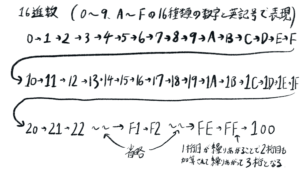 16進数（0〜9、A〜Fの16種類の数字と英記号で表現）
0→1→2→3→4→5→6→7→8→9→A→B→C→D→E→F
10→11→12→13→14→15→16→17→18→19→1A→1B→1C→1D→1E→1F
20→21→22 〜〜→F1→F2 〜〜→FE→FF→100
省略
1桁目が繰り上がることで2桁目も
加算されて繰り上がって3桁となる